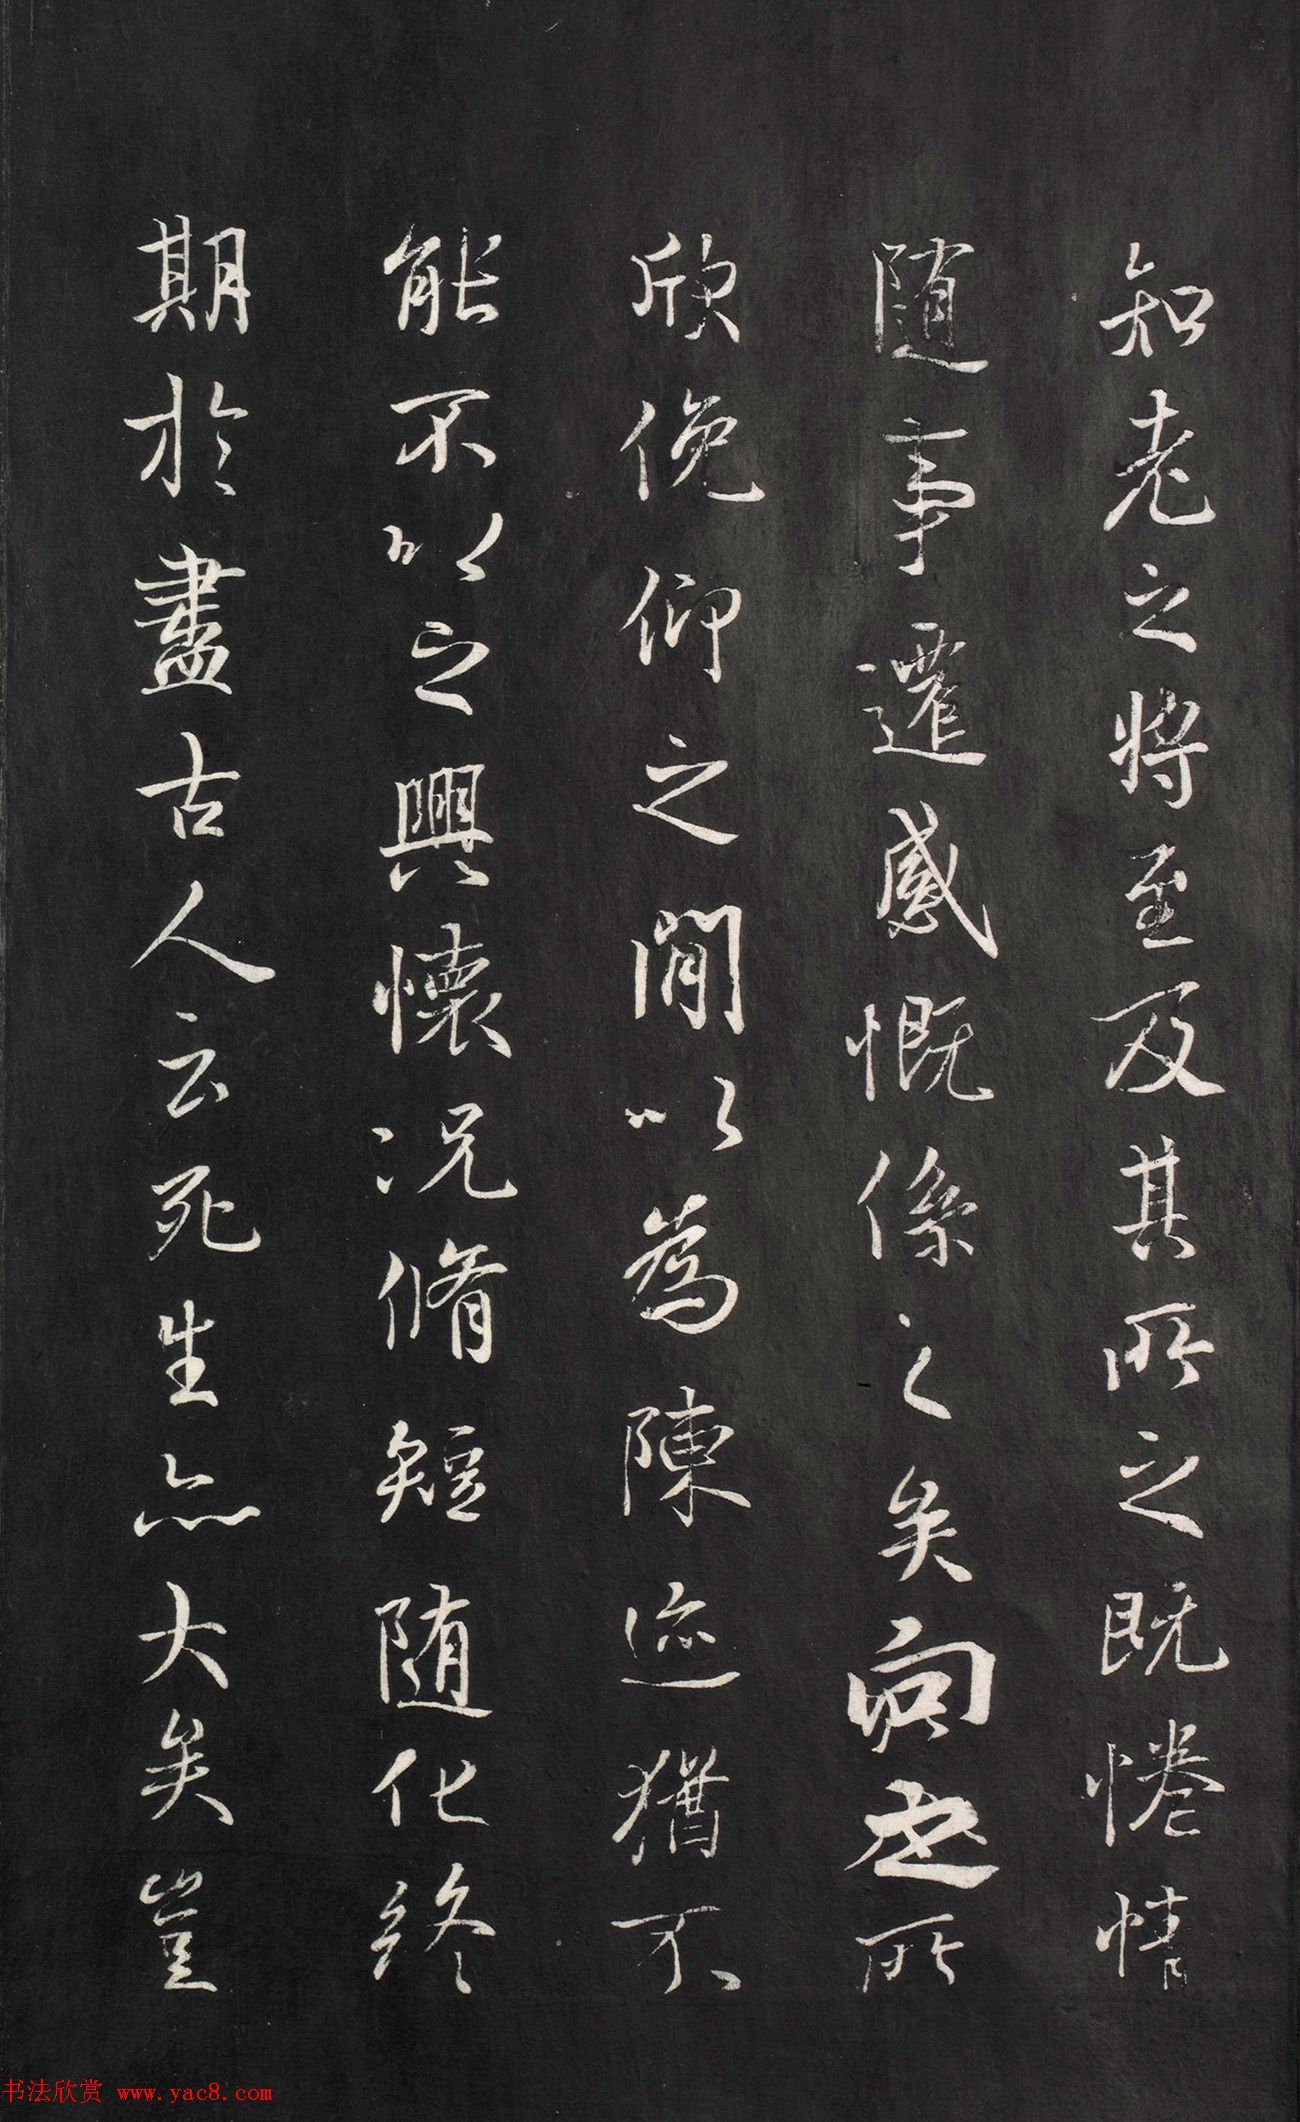 知老之将至及其所之既惓情
随事遷感慨係之矣向之所
欣俛仰之閒以為陳迹猶不
能不以之興懷況脩短随化終
期於盡古人云死生亦大矣豈
书法欣赏 www.yac8.com